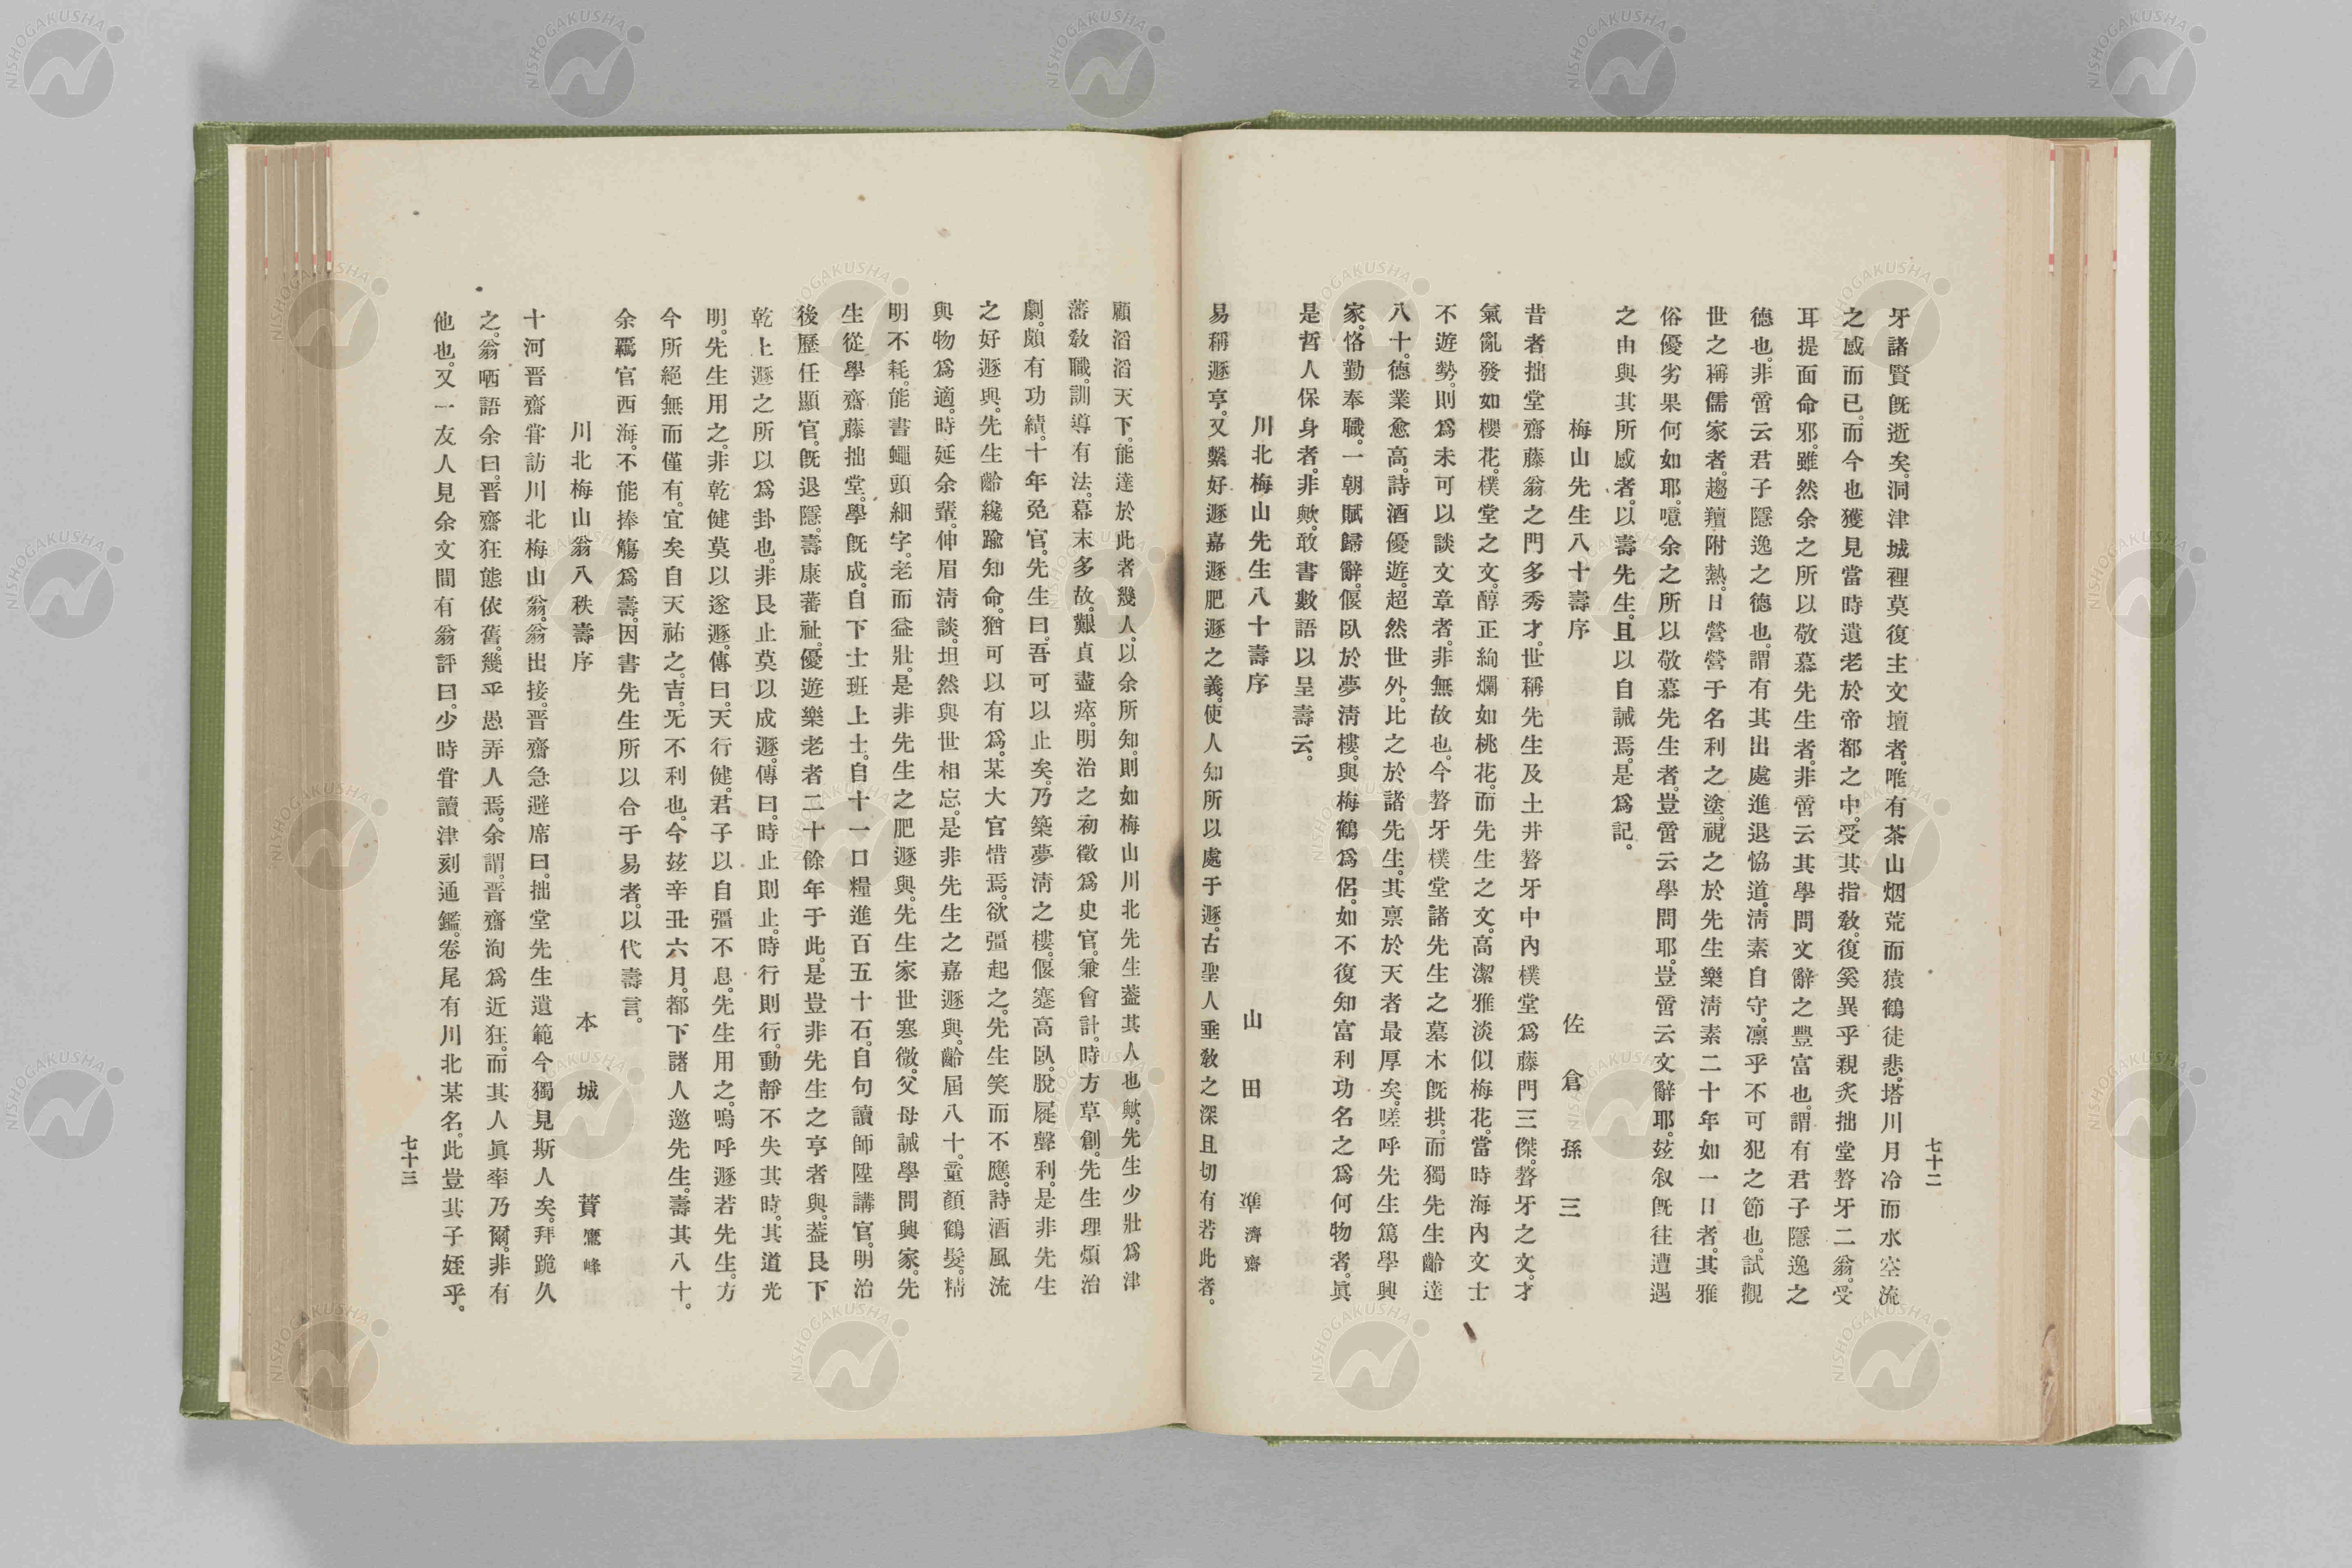 七十二
牙諸賢既逝矣。洞津城裡莫復主文壇者。唯有茶山烟荒而猿鶴徒悲。塔川月冷而水空流
之感而已。而今也獲見當時遺老於帝都之中。受其指教。復奚異乎親炙拙堂聱牙二翁。受
耳提面命邪。雖然余之所以敬慕先生者。非啻云其學問文辭之豐富也。謂有君子隱逸之
德也。非啻云君子隱逸之德也。謂有其出處進退恊道。淸素自守。凛乎不可犯之節也。試觀
世之稱儒家者。趨羶附熱。日營營于名利之塗。視之於先生樂淸素二十年如一日者。其雅
俗優劣果何如耶。噫余之所以敬慕先生者。豈啻云學問耶。豈啻云文辭耶。玆叙既往遭遇
之由與其所感者。以壽先生。且以自誡焉。是爲記。
梅山先生八十壽序
佐倉孫三
昔者拙堂齋藤翁之門多秀才。世稱先生及土井聱牙中內樸堂爲藤門三傑。聱牙之文。才
氣亂發如櫻花。樸堂之文。醇正絢爛如桃花。而先生之文。高潔雅淡似梅花。當時海內文士
不遊勢。則爲未可以談文章者。非無故也。今聱牙樸堂諸先生之墓木既拱。而獨先生齡達
八十。德業愈高。詩酒優遊。超然世外。比之於諸先生。其禀於天者最厚矣。嗟呼先生篤學興
家。恪勤奉職。一朝賦歸辭。偃臥於夢淸樓。與梅鶴爲侶。如不復知富利功名之爲何物者。眞
是哲人保身者。非歟。敢書數語以呈壽云。
川北梅山先生八十壽序
山田準濟齋
易稱遯亨。又繫好遯嘉遯肥遯之義。使人知所以處于遯。古聖人垂敎之深且切有若此者。
顧滔滔天下。能達於此者幾人。以余所知。則如梅山川北先生葢其人也歟。先生少壯爲津
藩敎職。訓導有法。幕末多故。艱貞盡瘁。明治之初徵爲史官。兼會計。時方草創。先生理煩治
劇。頗有功績。十年免官。先生曰。吾可以止矣。乃築夢淸之樓。偃蹇高臥。脫屣聲利。是非先生
之好遯與。先生齡纔踰知命。猶可以有爲。某大官惜焉。欲彊起之。先生笑而不應。詩酒風流
與物爲適。時延余輩。伸眉淸談。坦然與世相忘。是非先生之嘉遯與。齡屆八十。童顏鶴髮。精
明不耗。能書蠅頭細字。老而益壯。是非先生之肥遯與。先生家世寒微。父母誡學問興家。先
生從學齋藤拙堂。學既成。自下士班上士。自十一口糧進百五十石。自句讀師陞講官。明治
後歷任顯官。既退隱。壽康蕃祉。優遊樂老者二十餘年于此。是豈非先生之亨者與。葢艮下
乾上遯之所以爲卦也。非艮止莫以成遯。傳曰。時止則止。時行則行。動靜不失其時。其道光
明。先生用之。非乾健莫以遂遯。傳曰。天行健。君子以自彊不息。先生用之。嗚呼遯若先生。方
今所絕無而僅有。宜矣自天祐之。吉。无不利也。今玆辛丑六月。都下諸人邀先生。壽其八十。
余羈官西海。不能捧觴爲壽。因書先生所以合于易者。以代壽言。
川北梅山翁八秩壽序
本城蕡鷹峰
十河晋齋甞訪川北梅山翁。翁出接。晋齋急避席曰。拙堂先生遺範今獨見斯人矣。拜跪久
之。翁哂語余曰。晋齋狂態依舊。幾乎愚弄人焉。余謂。晋齋洵爲近狂。而其人眞率乃爾。非有
他也。又一友人見余文間有翁評曰。少時甞讀津刻通鑑。卷尾有川北某名。此豈其子姪乎。
七十三